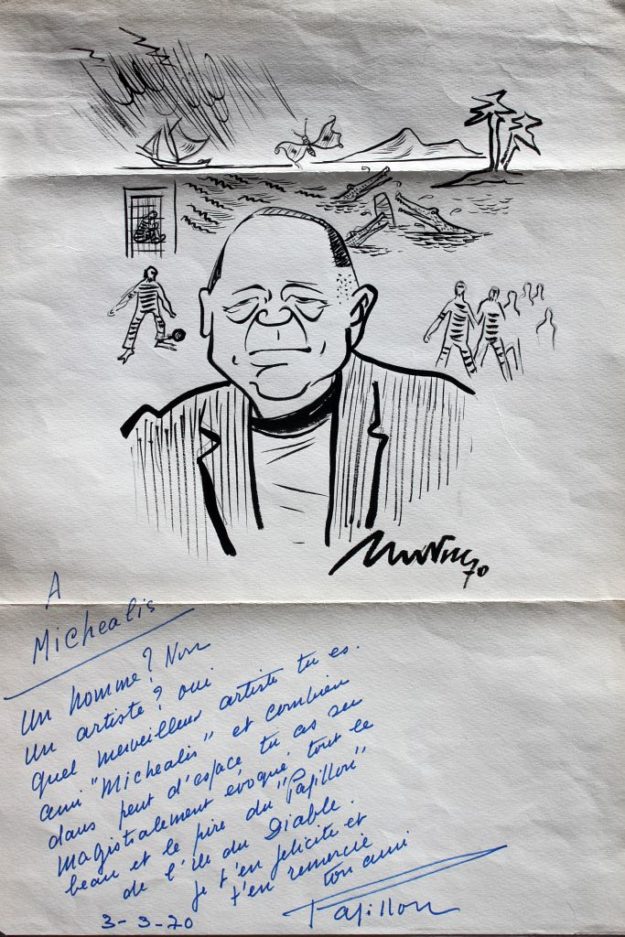 70
A
Michealis
Un homme? Non
Un artiste? oui
Quel merveilleux artiste tu es.
ami "Michealis" et combien
dans peut d'espace tu as seu
magistralement évoqué, tout le
beau et le pire du "Papillon"
de l'île du Diable.
Je t'en felicite et
t'en remercie
ton ami
3-3-70
Papillon